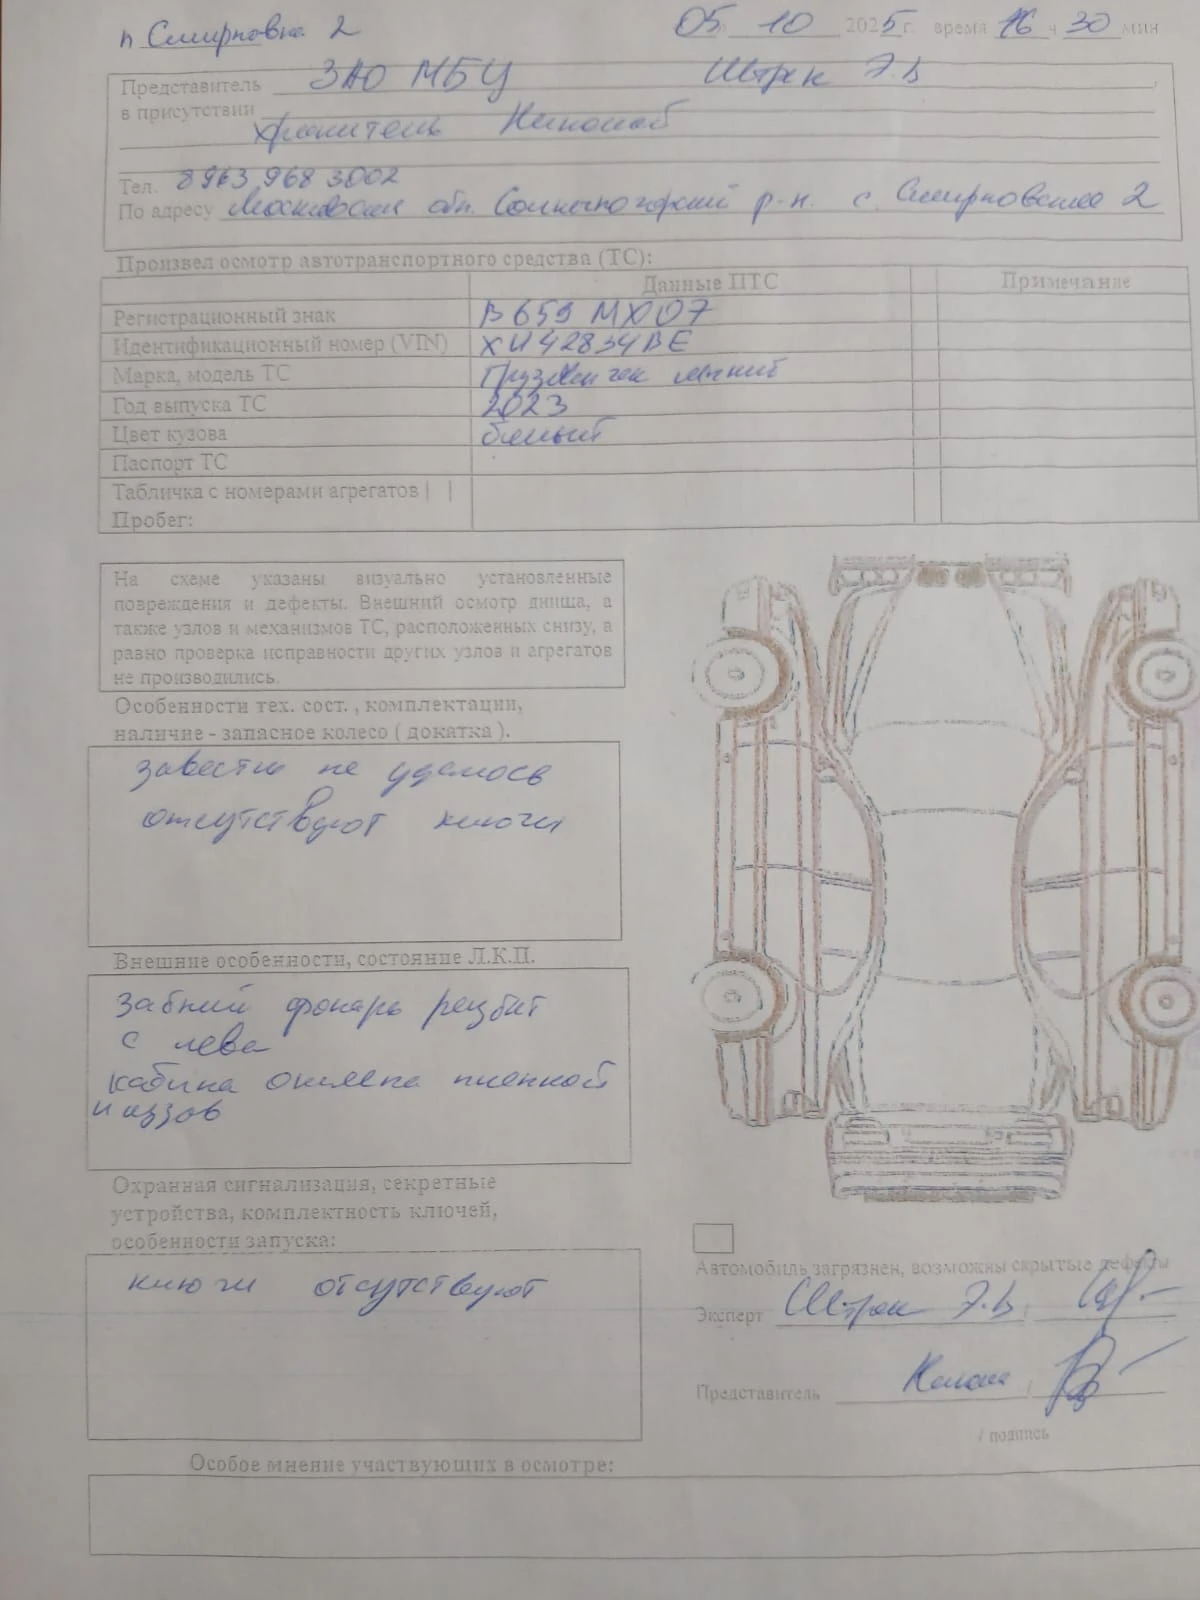 п Смирновка 2 05 10 2025 г. время 16 ч 30 мин
Представитель ЗАО МБЦ Штрек Э.В
в присутствии
хранитель
Тел. 8963 968 3002
По адресу Московская обл. Солнечногорский р-н. с Смирновка 2
Произвел осмотр автотранспортного средства (ТС):
Данные ПТС Примечание
Регистрационный знак В 659 МХ 07
Идентификационный номер (VIN)
Марка, модель ТС
Год выпуска ТС 2023
Цвет кузова белый
Паспорт ТС
Табличка с номерами агрегатов | |
Пробег:
На схеме указаны визуально установленные
повреждения и дефекты. Внешний осмотр днища, а
также узлов и механизмов ТС, расположенных снизу, а
равно проверка исправности других узлов и агрегатов
не производились.
Особенности тех. сост. , комплектации,
наличие - запасное колесо ( докатка ).
завести не удалось
отсутствуют ключи
Внешние особенности, состояние Л.К.П.
задний фонарь разбит
с лева
кабина оклеена пленкой
и кузов
Охранная сигнализация, секретные
устройства, комплектность ключей,
особенности запуска:
ключи отсутствуют
Автомобиль загрязнен, возможны скрытые дефекты
Эксперт Штрек Э.В /
Представитель /
/ подпись
Особое мнение участвующих в осмотре: